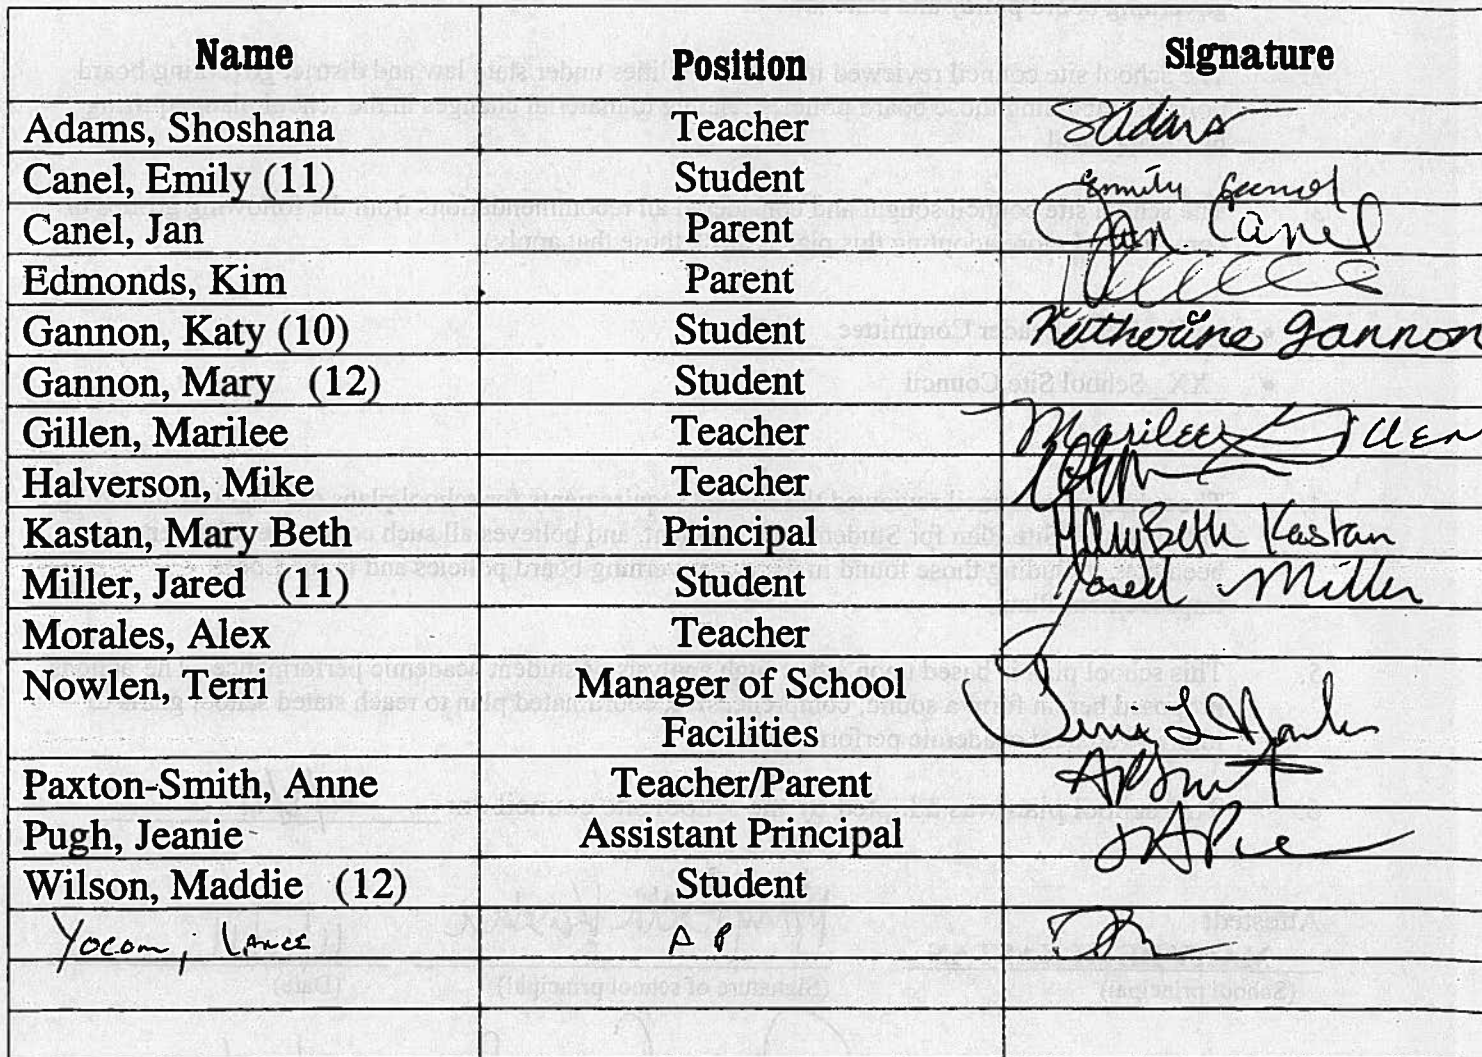 Name Position Signature
Adams, Shoshana Teacher SAdams
Canel, Emily (11) Student Emily Canel
Canel, Jan Parent Jan Canel
Edmonds, Kim Parent
Gannon, Katy (10) Student Katherine Gannon
Gannon, Mary (12) Student
Gillen, Marilee Teacher Marilee Gillen
Halverson, Mike Teacher
Kastan, Mary Beth Principal Mary Beth Kastan
Miller, Jared (11) Student Jared Miller
Morales, Alex Teacher
Nowlen, Terri Manager of School
Facilities
Paxton-Smith, Anne Teacher/Parent
Pugh, Jeanie Assistant Principal
Wilson, Maddie (12) Student
Yocom, Lance AP